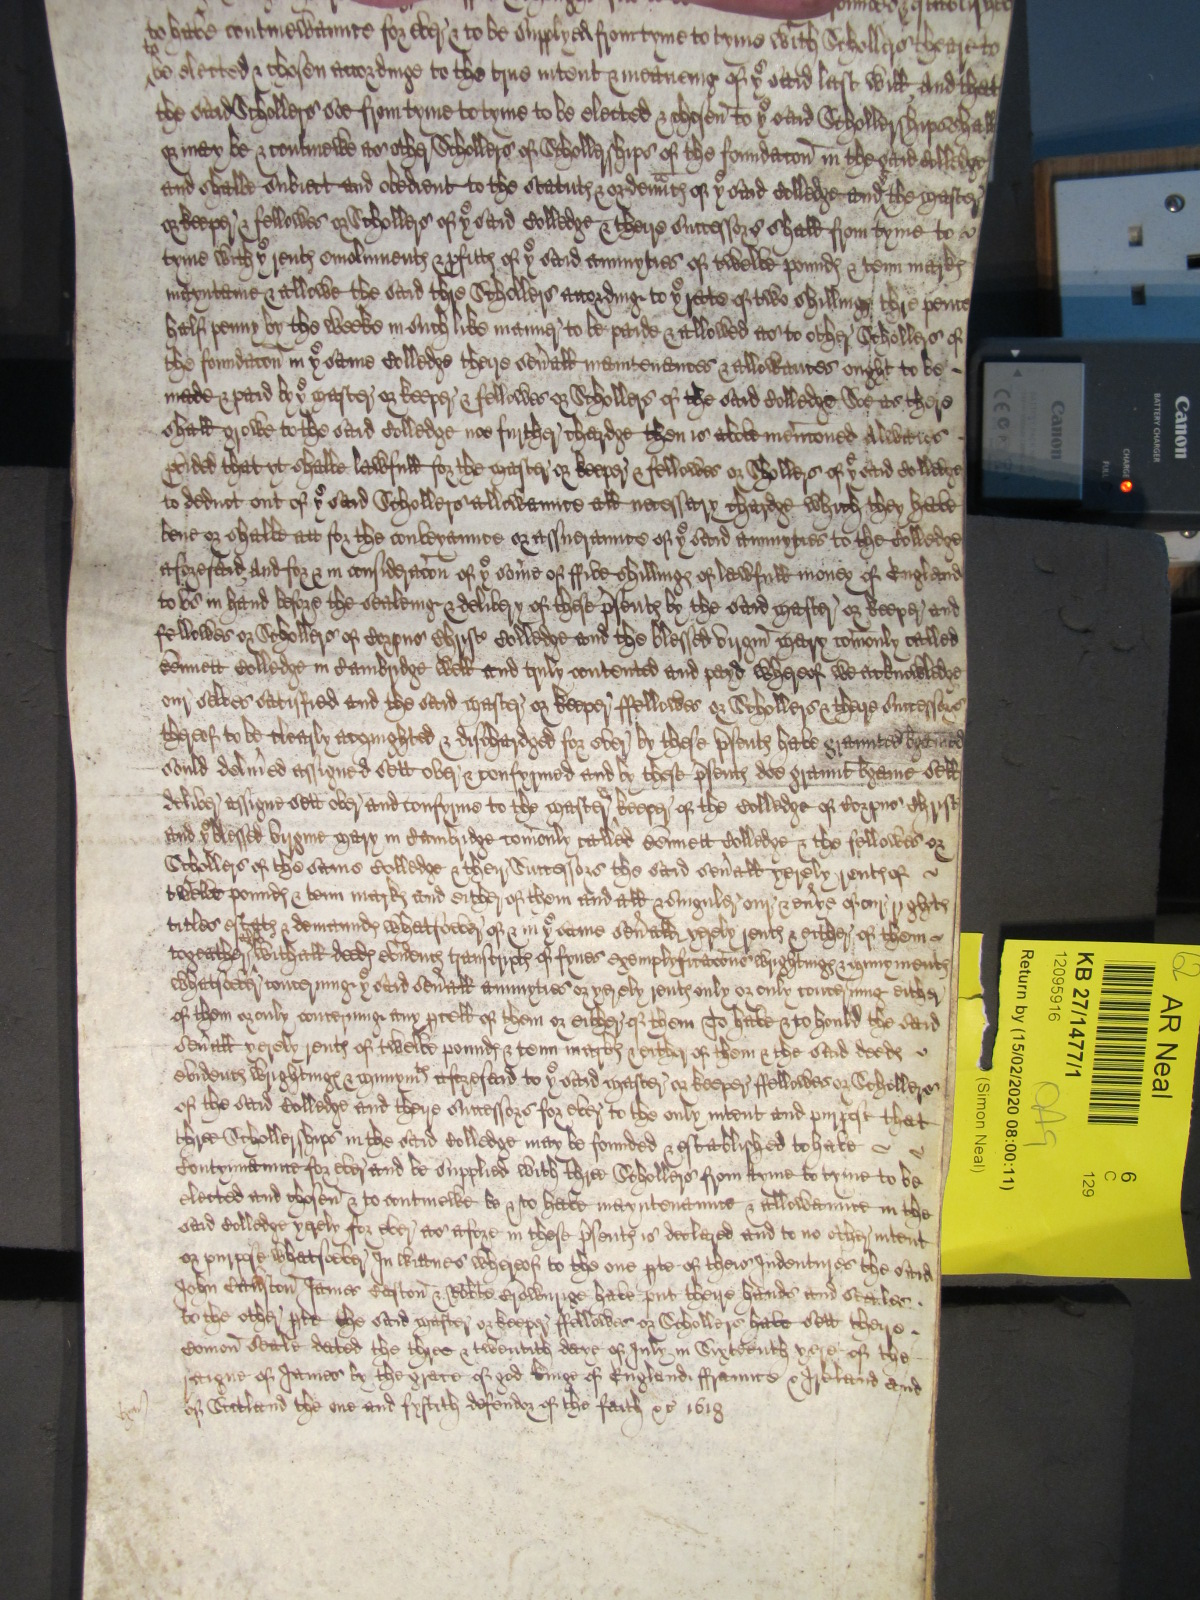 to have contynewannce for ever & to be supplyed from tyme to tyme with Schollers theare to
be elected & chosen accordinge to the true intent & meaneing of yͤ said last will And that
the said Schollers soe from tyme to tyme to be elected & chosen to yͤ said Schollershipps shall
or may be & contynewe as other Schollers of Schollershipps of the foundacon in the said Colledge
and shalbe subiect and obedient to the statut & of yͤ said Colledge and the Master
or keeper & fellowes or Schollers of yͤ said Colledge & theire Successors shall from tyme to
tyme with yͤ rents emoluments & pfitts of yͤ said annuyties of twelve pounds & tenn marks
mayntaine & allowe the said thre Schollers according to yͤ rate of two shillings thre pence
half penny by the weeke in such like manner to be paide & allowed as to other Schollers of
the foundacon in yͤ same Colledge theire sevall maintenances & allowances ought to be
made & paid by yͤ Master or keeper & fellowes or Schollers of the said Colledge Soe as there
shall growe to the said Colledge noe further chardge then is above mencioned Alwaies
pvided that yt shalbe lawfull for the Master or keeper & fellowes or Schollers of yͤ said Colledge
to deduct out of yͤ said Schollers allowannce all necessary chardge which they have
bene or shalbe att for the conveyannce or assurannce of yͤ said annuyties to the Colledge
aforesaid And for & in consideracon of yͤ some of ffive shillings of lawfull money of England
to us in hand before the sealeing & delivery of these psents by the said Master or keeper and
fellowes or Schollers of Corpus Christi Colledge and the blessed virgin Mary comonly called
Bennett Colledge in Cambridge well and truly contented and payd whereof we acknowledge
our selves satisfied and the said Master or keeper ffellowes or Schollers & theire Successors
thereof to be clearly acquighted & dischardged for ever by these psents have graunted bargained
sould delived assigned sett over & confyrmed and by these psents doe graunt sell
deliver assigne sett over and confyrme to the Master keeper of the Colledge of Corpus Christi
and yͤ blessed virgine Mary in Cambridge comonly called Bennett Colledge & the fellowes or
Schollers of the same Colledge & their Successors the said sevall yerely rents of
twelve pounds & tenn marks and either of them and all & singuler our & evͬie of our rights
titles estats & demaunds whatsoever of & in yͤ same sevall yerely rents & either of them
togeather with all deeds evidents transcripts of fynes exemplyficacons wrightings & mynyments
whatsoevͬ concerning yͤ said sevall annuyties or yerely rents only or only concerning either
of them or only concerning any pcell of them or either of them To have & to hould the said
sevall yerely rents of twelve pounds & tenn marks & either of them & the said deeds
evidents wrightings & mynymts aforesaid to yͤ said Master or keeper ffellowes or Schollers
of the said Colledge and theire Successors for ever to the only intent and purpose that
three Schollershipps in the said Colledge may be founded & established to have
Contynuannce for ever and be supplied with three Schollers from tyme to tyme to be
elected and chosen & to contynewe be & to have mayntenannce & allowannce in the
said Colledge yerely for ever as afore in these psents is declared and to no other intent
or purpose whatsoever In witnes whereof to the one pte of theis Indentures the said
John James Easton & have put theire hands and seales
to the other pte the said Master or keeper ffellowes or Schollers have sett theire
Comon Seale dated the three & twentith daye of July in Sixteenth yere of the
reigne of James by the grace of god kinge of England ffrannce & Ireland and
of Scotland the one and fyftith defendor of the faith &c 1618
Canon
BATTERY CHARGER
CHARGE
FULL
Canon
CE
AR Neal
KB 27/1477/1
12095916
Return by (15/02/2020 08:00:11)
(Simon Neal)
6
C
129